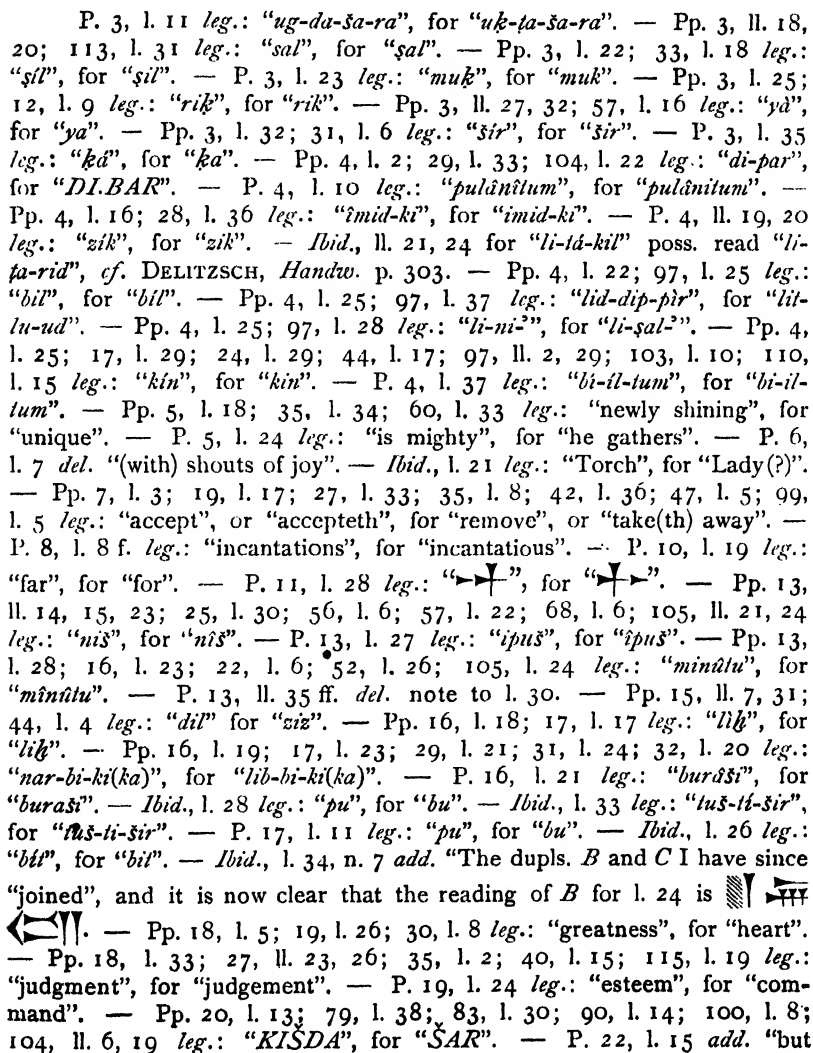 P. 3, l. 11 leg.: “ug-da-ša-ra”, for “uḳ-ṭa-ša-ra”. — Pp. 3, ll. 18,
20; 113, l. 31 leg.: “sal”, for “ṣal”. — Pp. 3, l. 22; 33, l. 18 leg.:
“ṣíl”, for “ṣil”. — P. 3, l. 23 leg.: “muḳ”, for “muk”. — Pp. 3, l. 25;
12, l. 9 leg.: “riḳ”, for “rik”. — Pp. 3, ll. 27, 32; 57, l. 16 leg.: “yà”,
for “ya”. — Pp. 3, l. 32; 31, l. 6 leg.: “šír”, for “šir”. — P. 3, l. 35
leg.: “ḳá”, for “ḳa”. — Pp. 4, l. 2; 29, l. 33; 104, l. 22 leg.: “di-par”,
for “DI.BAR”. — P. 4, l. 10 leg.: “pulânîtum”, for “pulânitum”. —
Pp. 4, l. 16; 28, l. 36 leg.: “îmid-ki”, for “imid-ki”. — P. 4, ll. 19, 20
leg.: “zík”, for “zik”. — Ibid., ll. 21, 24 for “li-tá-kil” poss. read “li-
ṭa-rid”, cf. DELITZSCH, Handw. p. 303. — Pp. 4, l. 22; 97, l. 25 leg.:
“bil”, for “bíl”. — Pp. 4, l. 25; 97, l. 37 leg.: “lid-dip-pìr”, for “lit-
lu-ud”. — Pp. 4, l. 25; 97, l. 28 leg.: “li-ni-ʾ”, for “li-ṣal-ʾ”. — Pp. 4,
l. 25; 17, l. 29; 24, l. 29; 44, l. 17; 97, ll. 2, 29; 103, l. 10; 110,
l. 15 leg.: “kín”, for “kin”. — P. 4, l. 37 leg.: “bi-íl-tum”, for “bi-il-
tum”. — Pp. 5, l. 18; 35, l. 34; 60, l. 33 leg.: “newly shining”, for
“unique”. — P. 5, l. 24 leg.: “is mighty”, for “he gathers”. — P. 6,
l. 7 del. “(with) shouts of joy”. — Ibid., l. 21 leg.: “Torch”, for “Lady(?)”.
— Pp. 7, l. 3; 19, l. 17; 27, l. 33; 35, l. 8; 42, l. 36; 47, l. 5; 99,
l. 5 leg.: “accept”, or “accepteth”, for “remove”, or “take(th) away”. —
P. 8, l. 8 f. leg.: “incantations”, for “incantatious”. — P. 10, l. 19 leg.:
“far”, for “for”. — P. 11, l. 28 leg.: “”, for “”. — Pp. 13,
ll. 14, 15, 23; 25, l. 30; 56, l. 6; 57, l. 22; 68, l. 6; 105, ll. 21, 24
leg.: “niš”, for “nîš”. — P. 13, l. 27 leg.: “ipuš”, for “îpuš”. — Pp. 13,
l. 28; 16, l. 23; 22, l. 6; 52, l. 26; 105, l. 24 leg.: “minûtu”, for
“mînûtu”. — P. 13, ll. 35 ff. del. note to l. 30. — Pp. 15, ll. 7, 31;
44, l. 4 leg.: “dil” for “ziz”. — Pp. 16, l. 18; 17, l. 17 leg.: “lìḫ”, for
“liḫ”. — Pp. 16, l. 19; 17, l. 23; 29, l. 21; 31, l. 24; 32, l. 20 leg.:
“nar-bi-ki(ka)”, for “lib-bi-ki(ka)”. — P. 16, l. 21 leg.: “burâši”, for
“buraši”. — Ibid., l. 28 leg.: “pu”, for “bu”. — Ibid., l. 33 leg.: “tuš-tí-šir”,
for “tuš-ti-šir”. — P. 17, l. 11 leg.: “pu”, for “bu”. — Ibid., l. 26 leg.:
“bít”, for “bit”. — Ibid., l. 34, n. 7 add. “The dupls. B and C I have since
“joined”, and it is now clear that the reading of B for l. 24 is
. — Pp. 18, l. 5; 19, l. 26; 30, l. 8 leg.: “greatness”, for “heart”.
— Pp. 18, l. 33; 27, ll. 23, 26; 35, l. 2; 40, l. 15; 115, l. 19 leg.:
“judgment”, for “judgement”. — P. 19, l. 24 leg.: “esteem”, for “com-
mand”. — Pp. 20, l. 13; 79, l. 38; 83, l. 30; 90, l. 14; 100, l. 8;
104, ll. 6, 19 leg.: “KIŠDA”, for “ŠAR”. — P. 22, l. 15 add. “but